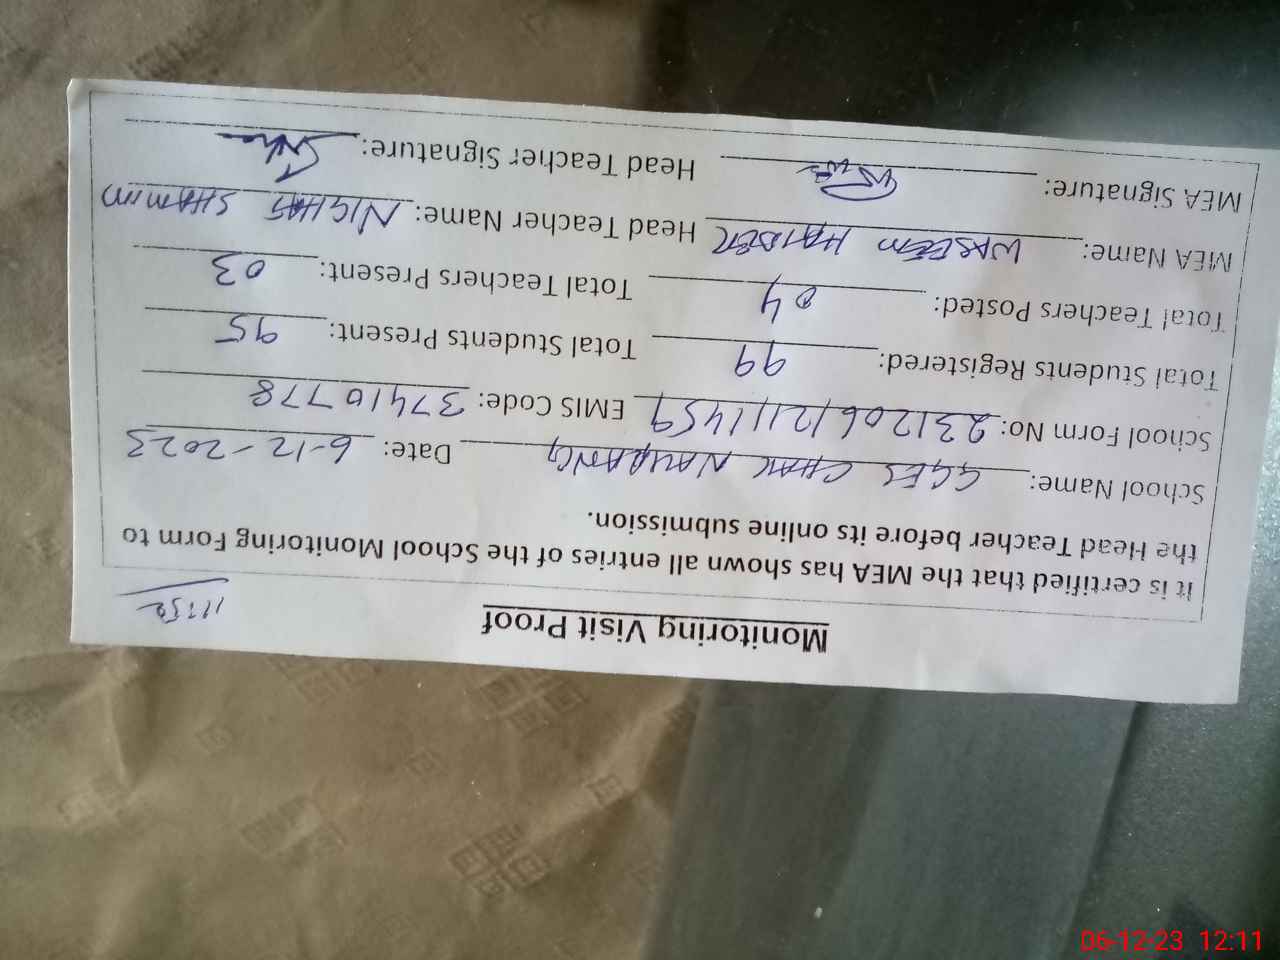 Monitoring Visit Proof
It is certified that the MEA has shown all entries of the School Monitoring Form to
the Head Teacher before its online submission.
School Name: GGES CHAK NAURANG Date: 6-12-2023
School Form No: 231206121111459 EMIS Code: 37410778
Total Students Registered: 99 Total Students Present: 95
Total Teachers Posted: 04 Total Teachers Present: 03
MEA Name: WASEEM HAIDER Head Teacher Name: NIGHAT SHAMIM
MEA Signature: Head Teacher Signature:
06-12-23 12:11